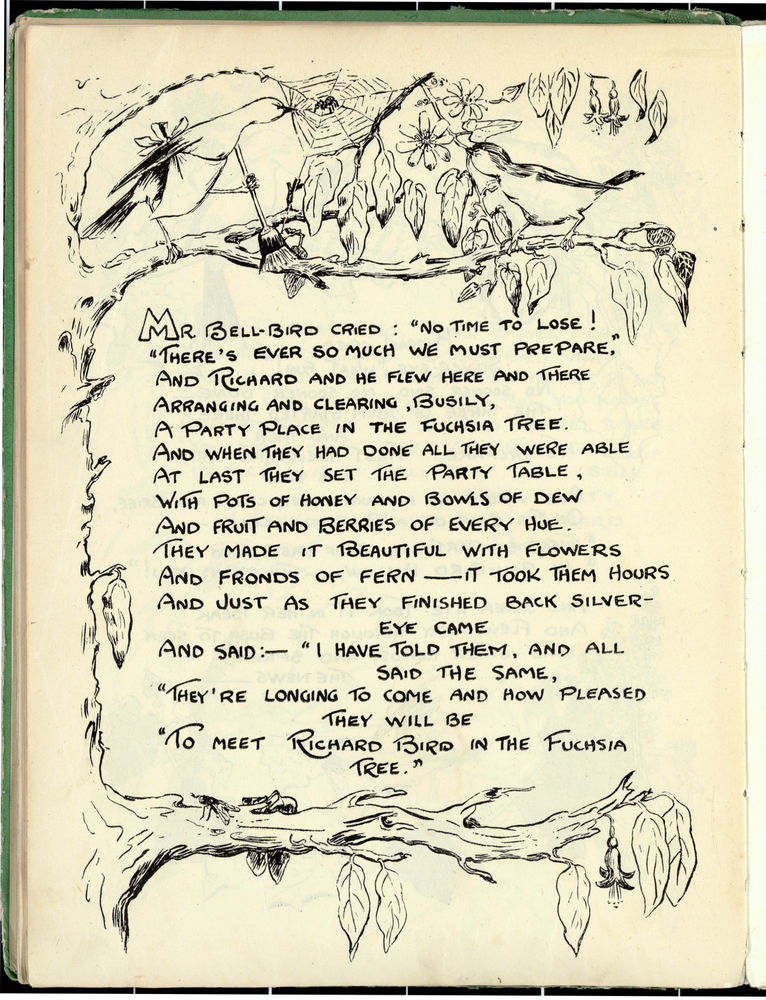 MR. BELL-BIRD CRIED : "NO TIME TO LOSE !
"THERE'S EVER SO MUCH WE MUST PREPARE,"
AND RICHARD AND HE FLEW HERE AND THERE
ARRANGING AND CLEARING , BUSILY,
A PARTY PLACE IN THE FUCHSIA TREE.
AND WHEN THEY HAD DONE ALL THEY WERE ABLE
AT LAST THEY SET THE PARTY TABLE ,
WITH POTS OF HONEY AND BOWLS OF DEW
AND FRUIT AND BERRIES OF EVERY HUE.
THEY MADE IT BEAUTIFUL WITH FLOWERS
AND FRONDS OF FERN — IT TOOK THEM HOURS
AND JUST AS THEY FINISHED BACK SILVER-
EYE CAME
AND SAID:— "I HAVE TOLD THEM, AND ALL
SAID THE SAME,
"THEY'RE LONGING TO COME AND HOW PLEASED
THEY WILL BE
"TO MEET RICHARD BIRD IN THE FUCHSIA
TREE."